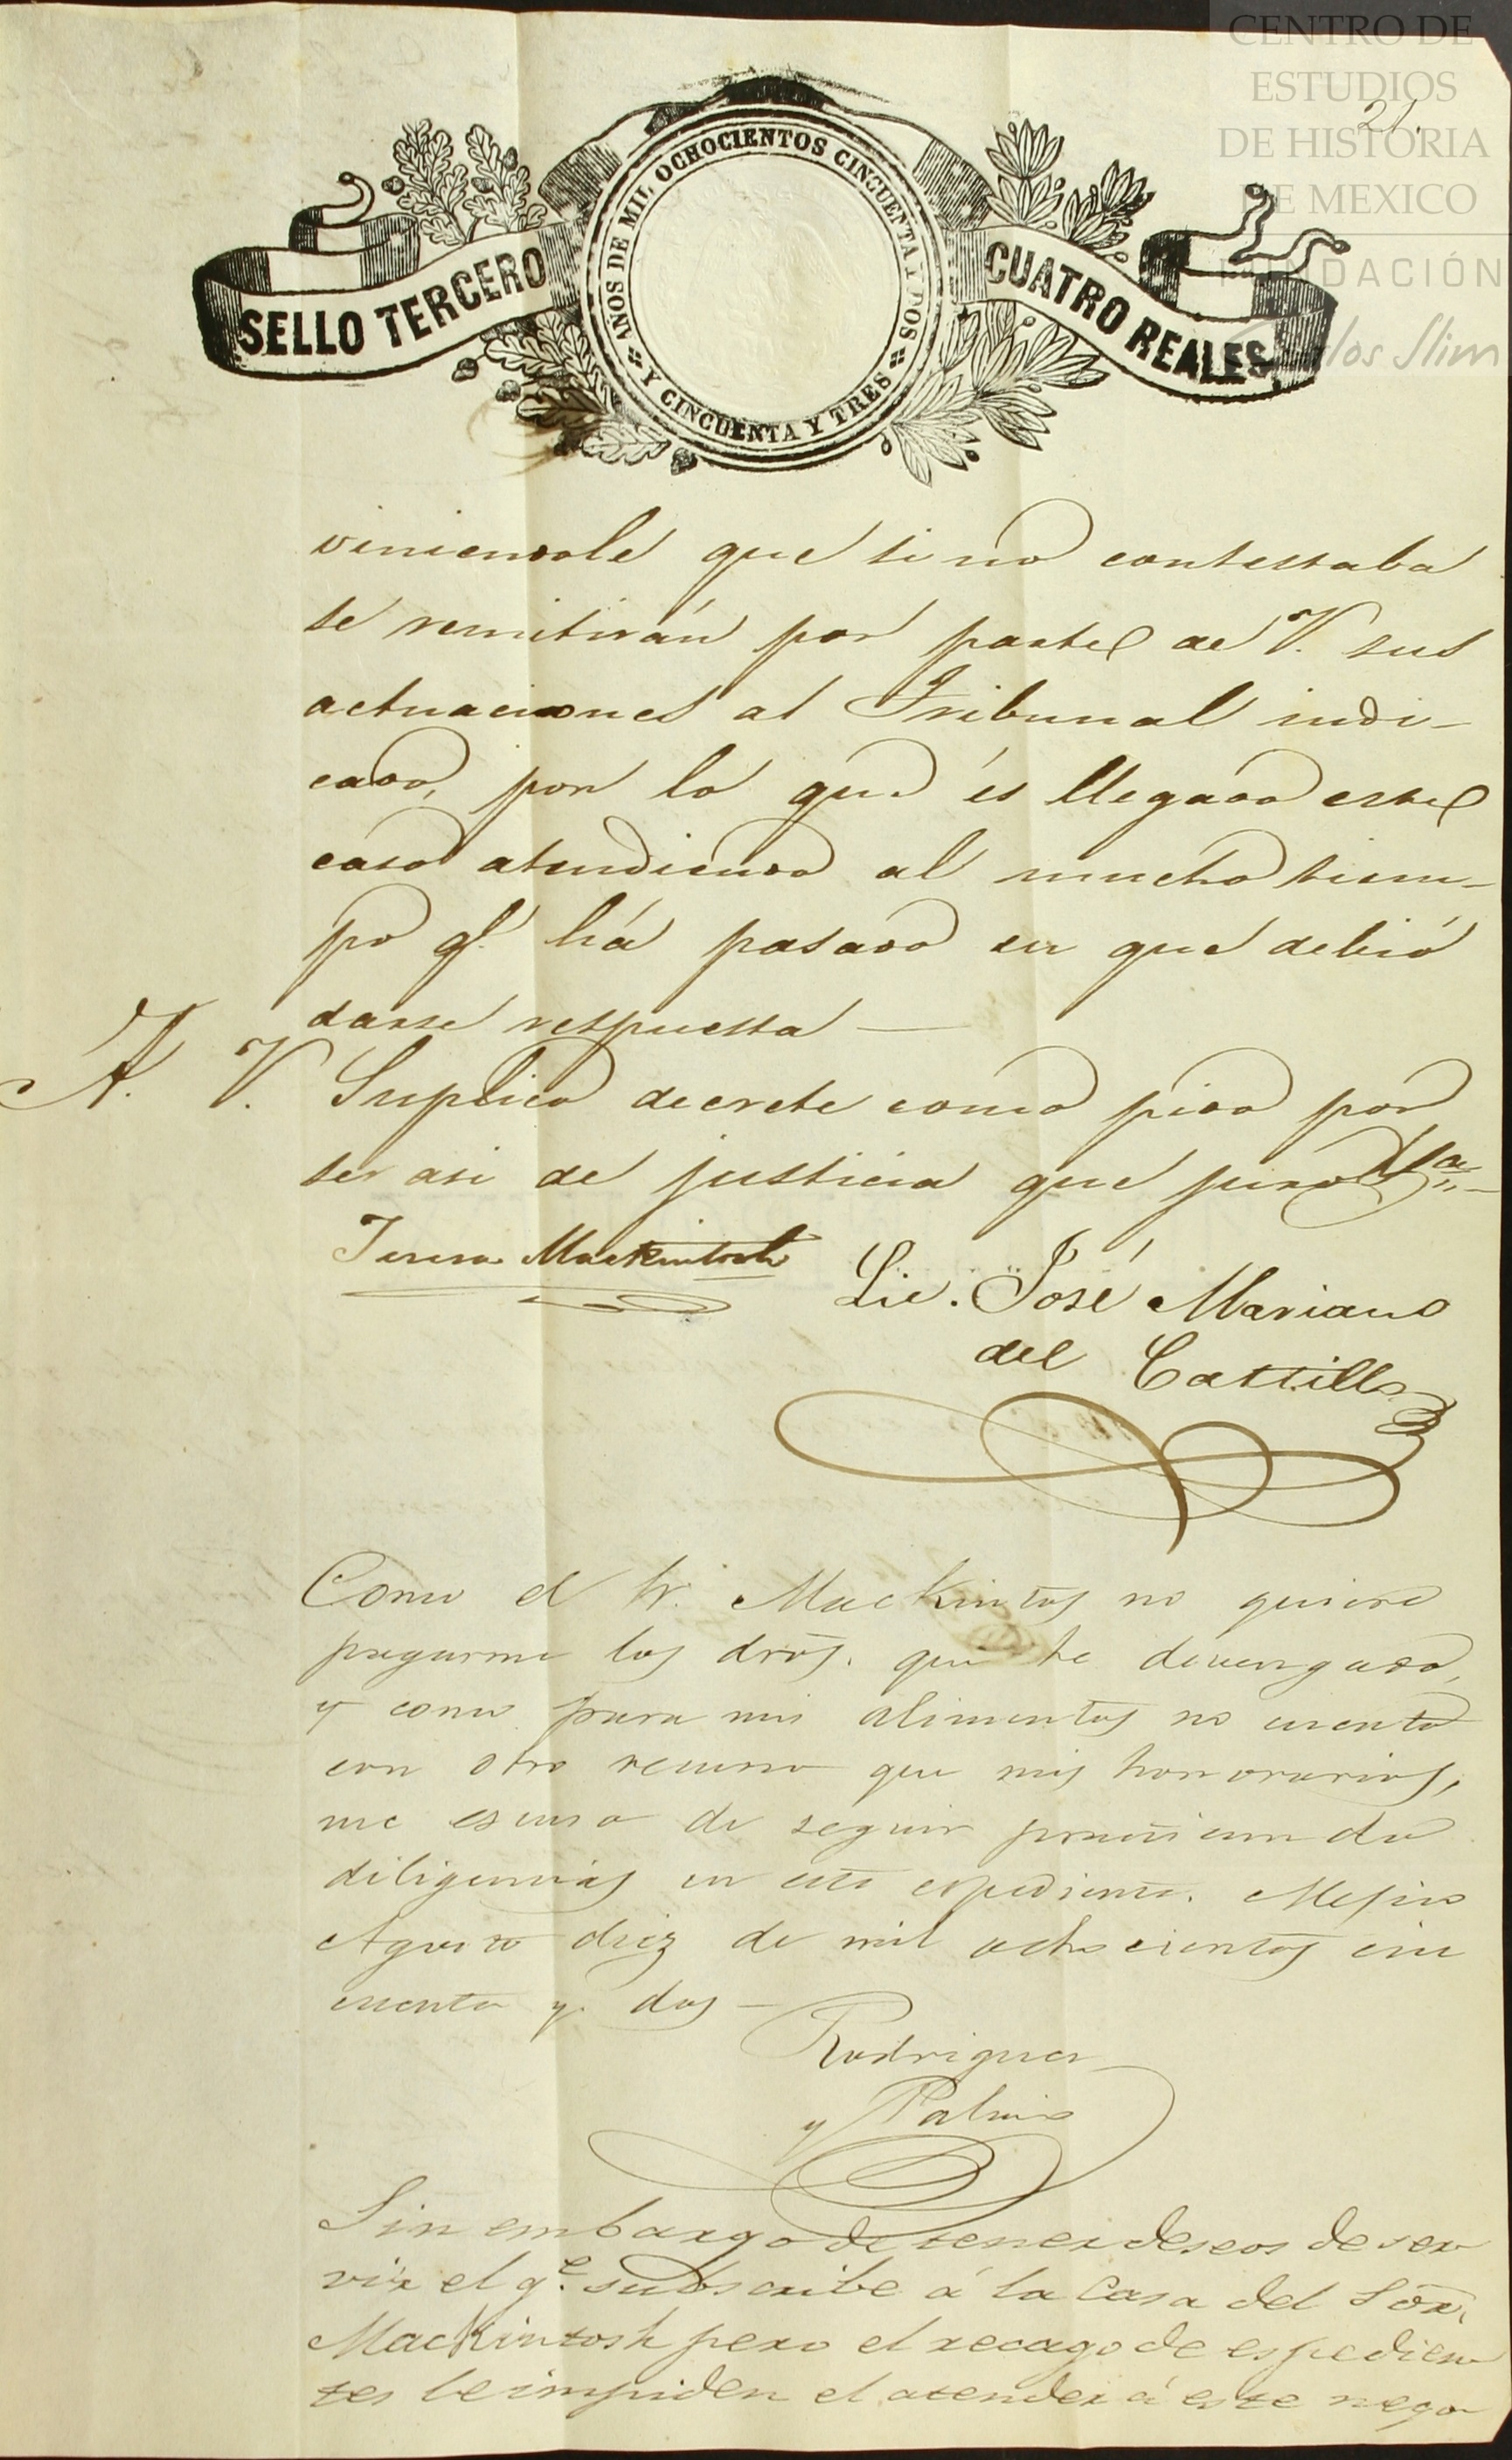 CENTRO DE
ESTUDIOS
DE HISTORIA
DE MEXICO
FUNDACIÓN
Carlos Slim
21.
SELLO TERCERO
AÑOS DE MIL OCHOCIENTOS CINCUENTA Y DOS
Y CINCUENTA Y TRES
CUATRO REALES
viniendole que si no contestaba
se remitirán por parte de V. sus
actuaciones al Tribunal indi-
cado, por lo que és llegado este
caso atendiendo al mucho tiem-
po q.e há pasado en que debió
darse respuesta —
A. V. Suplico decrete como pido por
ser asi de justicia que juro &a.
Teresa Mackintosh
Lic. José Mariano
del Castillo
Como el Sr. MacKintos no quiere
pagarme los dros. que he devengado,
y como para mis alimentos no cuento
con otro recurso que mis honorarios,
me escuso de seguir practicando
diligencias en este espediente. Mejico
Agosto diez de mil ochocientos cin
cuenta y dos —
Rodriguez
y Palacio
Sin embargo de tener deseos de ser
vir el q.e subscribe á la Casa del Sor.
MacKintosh pero el recago de espedien
tes le impiden el atender á este nego